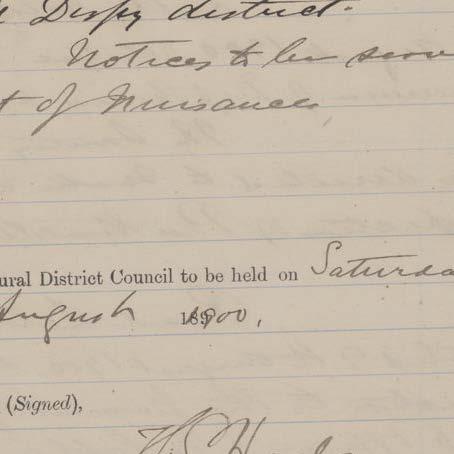 district.
Notices to be serv
t of Nuisances
ural District Council to be held on Saturda
August 1900,
(Signed),